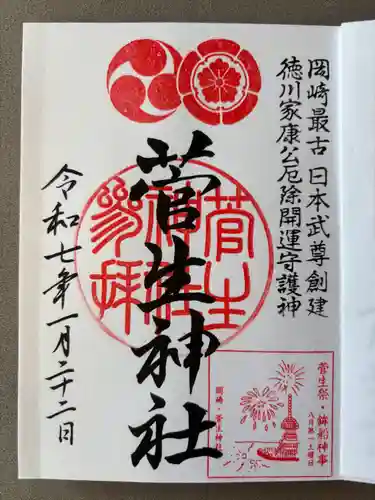 岡崎最古 日本武尊創建
徳川家康公厄除開運守護神
菅生神社
菅生神社参拝
令和七年一月二十二日
菅生祭・鉾船神事
八月第一土曜日
岡崎・菅生神社